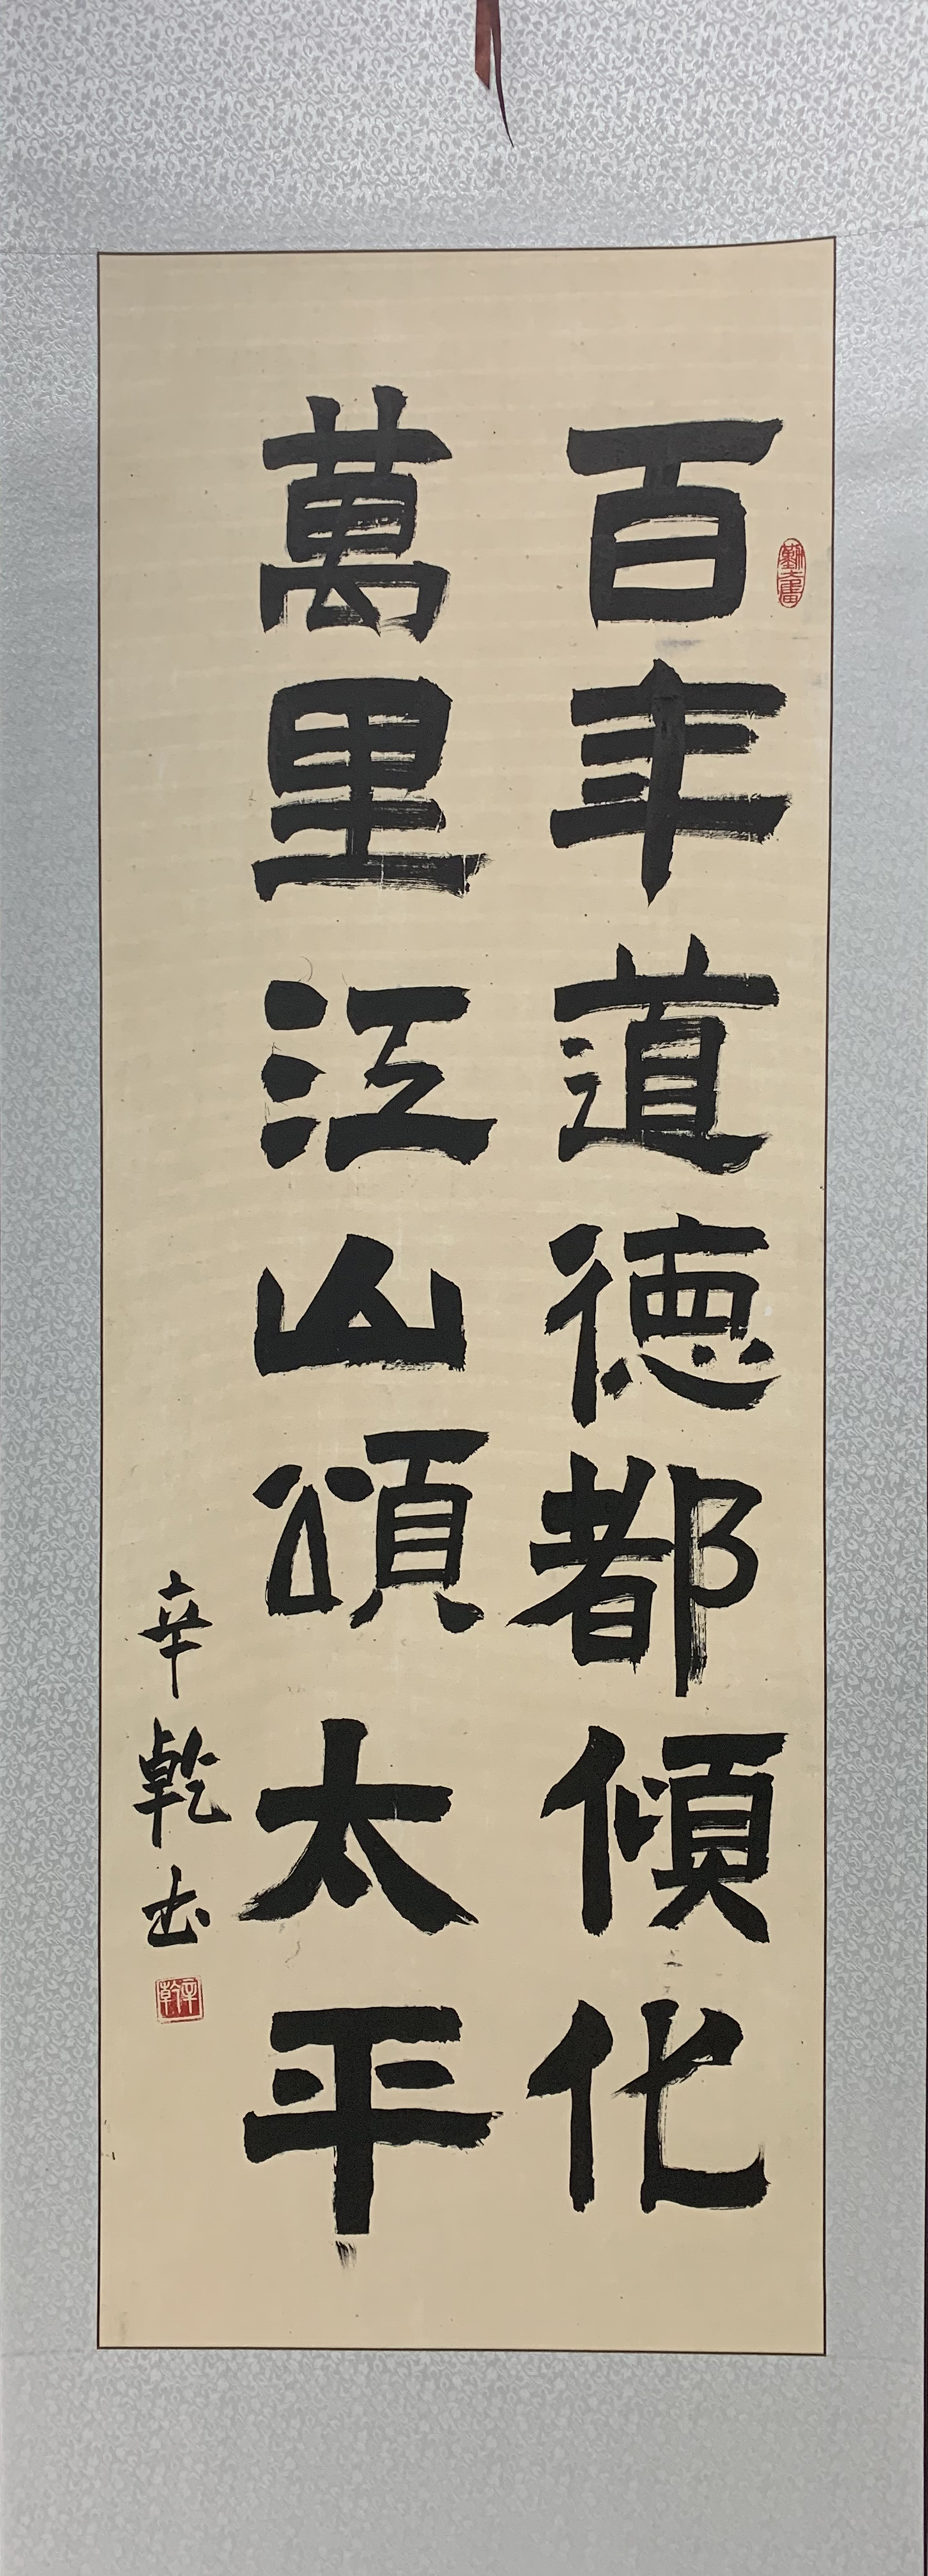 百年道德都傾化
萬里江山頌太平
辛乾书
辛乾